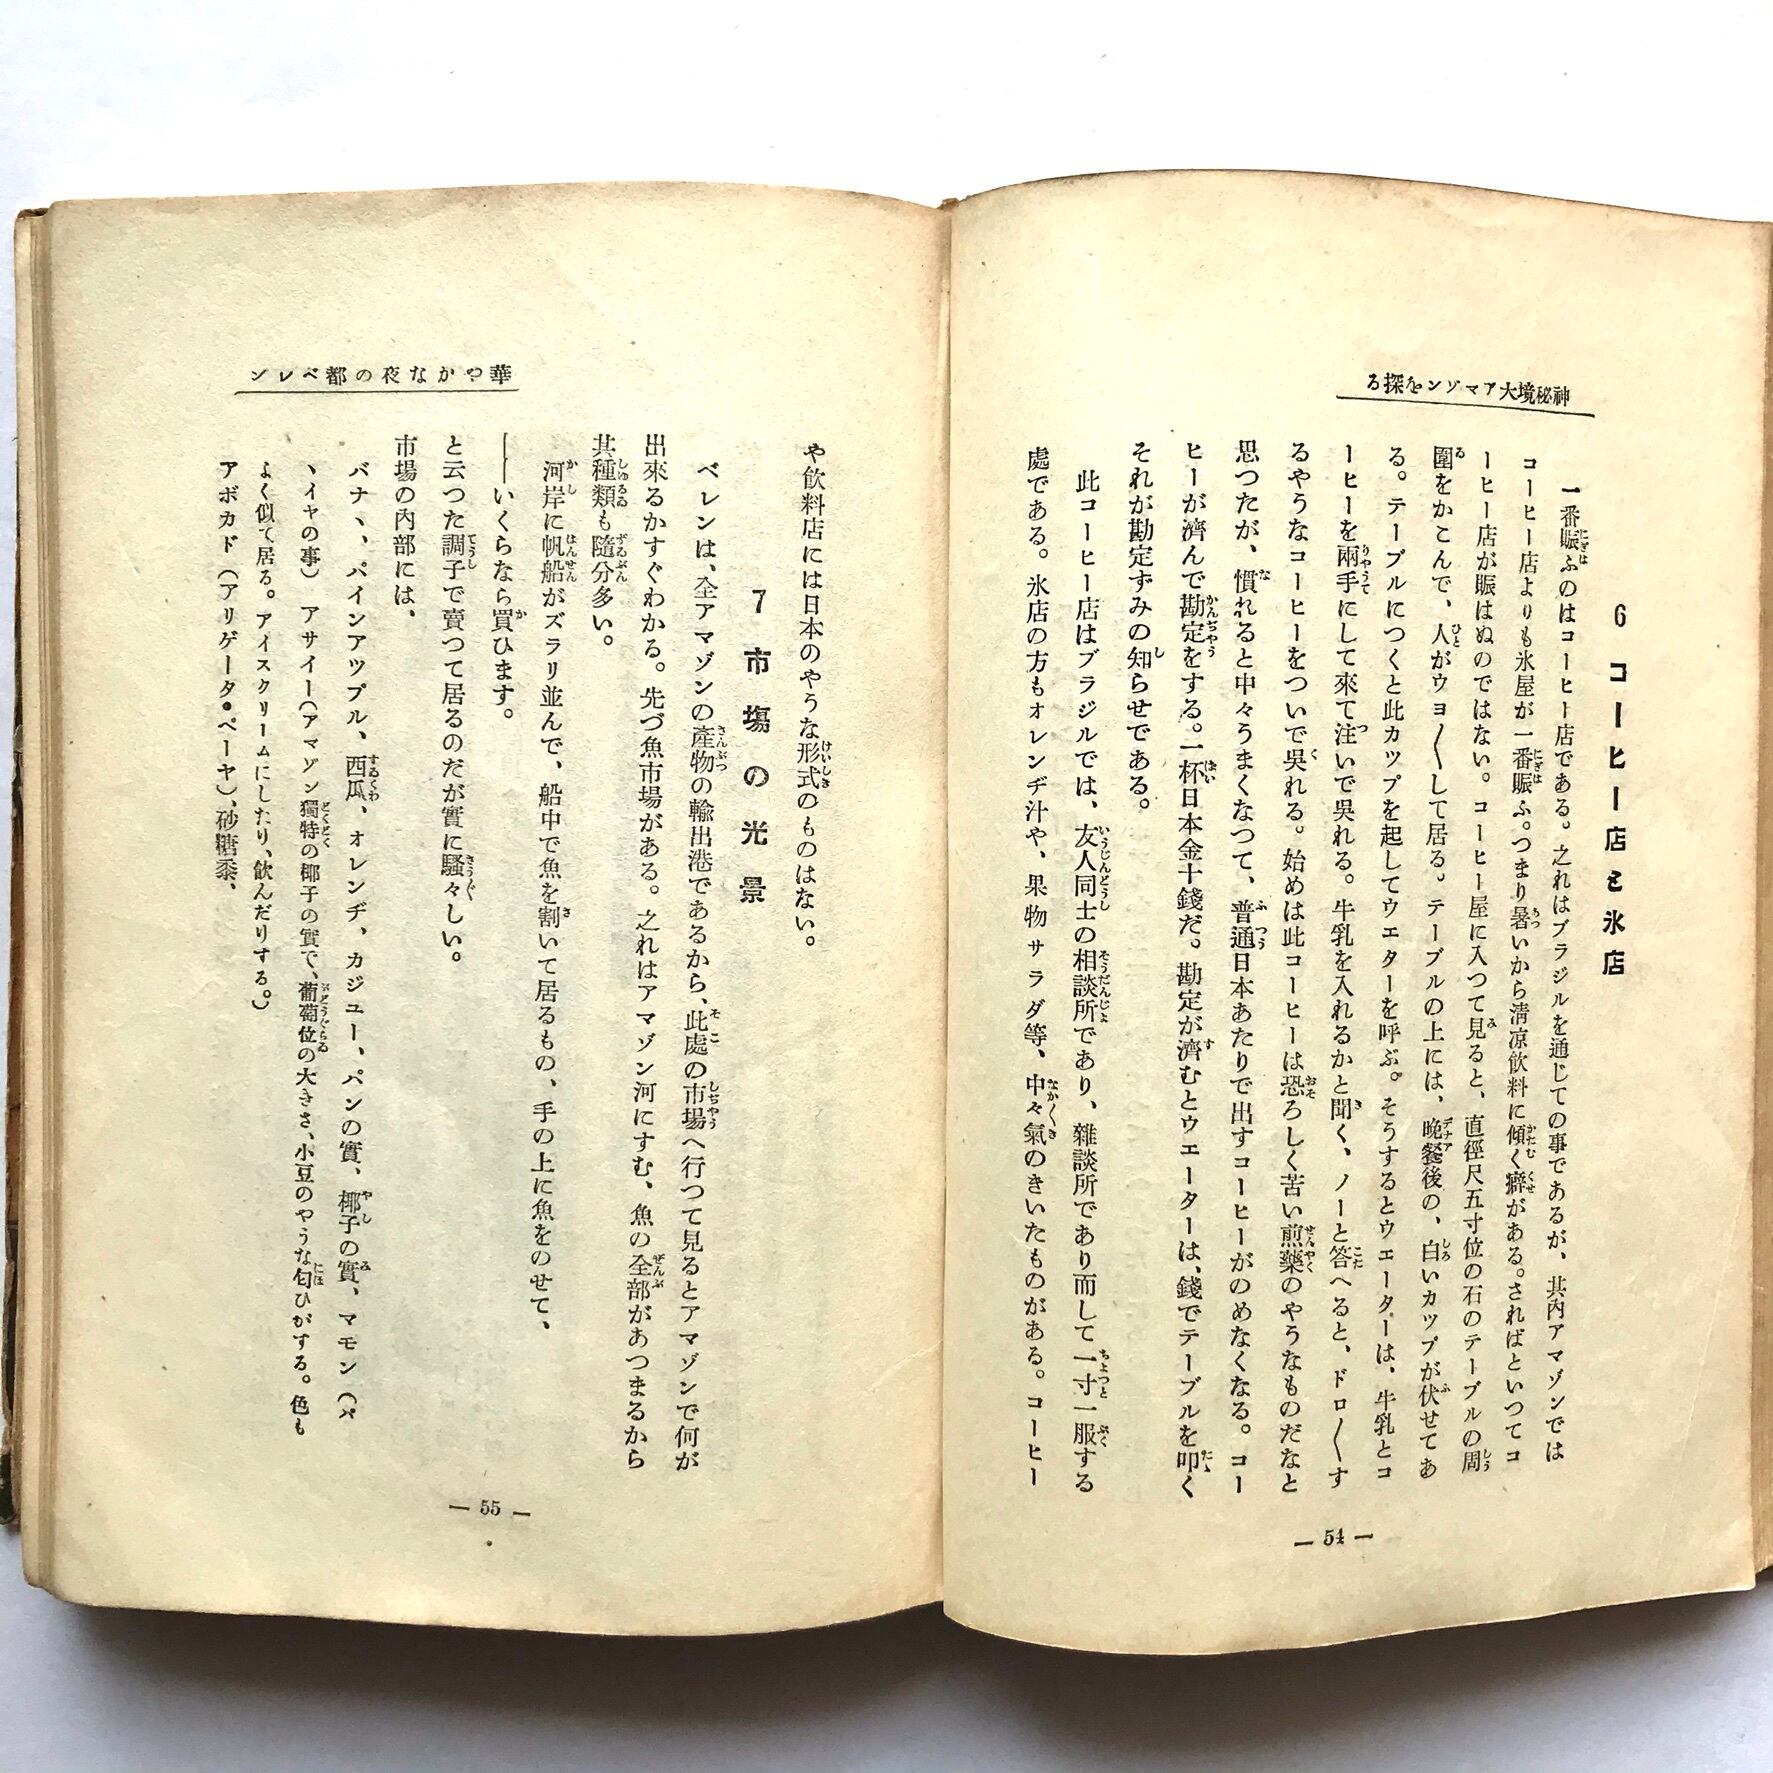 神秘境大アマゾンを探る
6 コーヒー店と氷店
一番賑ふのはコーヒー店である。之れはブラジルを通じての事であるが、其内アマゾンでは
コーヒー店よりも氷屋が一番賑ふ。つまり暑いから清凉飲料に傾く癖がある。さればといつてコ
ーヒー店が賑はぬのではない。コーヒー屋に入つて見ると、直徑尺五寸位の石のテーブルの周
圍をかこんで、人がウヨ〳〵して居る。テーブルの上には、晩餐後の、白いカツプが伏せてあ
る。テーブルにつくと此カツプを起してウエターを呼ぶ。そうするとウエーターは、牛乳とコ
ーヒーを兩手にして來て注いで呉れる。牛乳を入れるかと聞く、ノーと答へると、ドロ〳〵す
るやうなコーヒーをついで呉れる。始めは此コーヒーは恐ろしく苦い煎藥のやうなものだなと
思つたが、慣れると中々うまくなつて、普通日本あたりで出すコーヒーがのめなくなる。コー
ヒーが濟んで勘定をする。一杯日本金十錢だ。勘定が濟むとウエーターは、錢でテーブルを叩く
それが勘定ずみの知らせである。
此コーヒー店はブラジルでは、友人同士の相談所であり、雜談所であり而して一寸一服する
處である。氷店の方もオレンヂ汁や、果物サラダ等、中々氣のきいたものがある。コーヒー
— 54 —
華やかな夜の都ベレン
や飲料店には日本のやうな形式のものはない。
7 市場の光景
ベレンは、全アマゾンの產物の輸出港であるから、此處の市場へ行つて見るとアマゾンで何が
出來るかすぐわかる。先づ魚市場がある。之れはアマゾン河にすむ、魚の全部があつまるから
其種類も隨分多い。
河岸に帆船がズラリ並んで、船中で魚を割いて居るもの、手の上に魚をのせて、
——いくらなら買ひます。
と云つた調子で賣つて居るのだが實に騷々しい。
市場の內部には、
バナヽ、パインアツプル、西瓜、オレンヂ、カジユー、パンの實、椰子の實、マモン（パ
ヽイヤの事）アサイー（アマゾン獨特の椰子の實で、葡萄位の大きさ、小豆のやうな匂ひがする。色も
よく似て居る。アイスクリームにしたり、飲んだりする。）
アボカド（アリゲータ・ペーヤ）、砂糖黍、
— 55 —